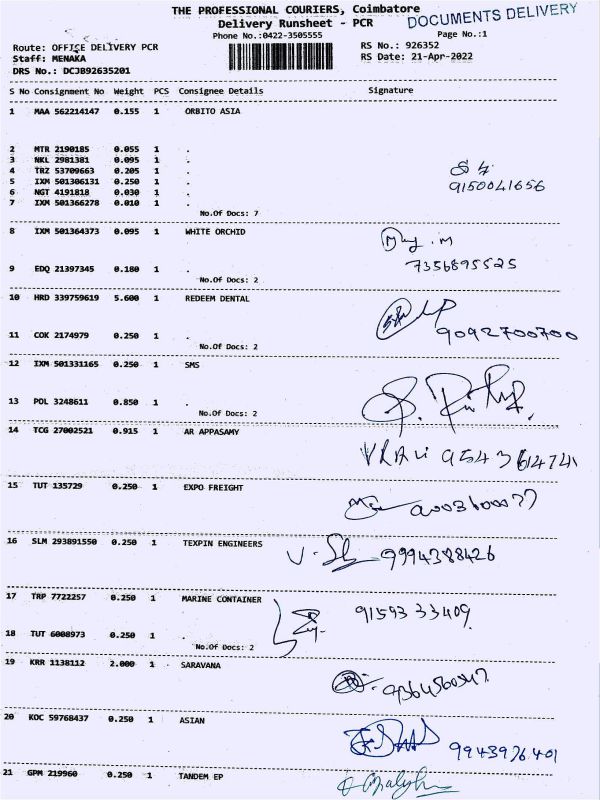 THE PROFESSIONAL COURIERS, Coimbatore
DOCUMENTS DELIVERY
Delivery Runsheet - PCR
Phone No.:0422-3505555
Page No.:1
Route: OFFICE DELIVERY PCR
RS No.: 926352
Staff: MENAKA
RS Date: 21-Apr-2022
DRS No.: DCJB92635201
S No Consignment No Weight PCS Consignee Details Signature
1 MAA 562214147 0.155 1 ORBITO ASIA
2 MTR 2190185 0.055 1 .
3 NKL 2981381 0.095 1 .
4 TRZ 53709663 0.205 1 .
5 IXM 501306131 0.250 1 .
6 NGT 4191818 0.030 1 .
7 IXM 501366278 0.010 1 .
9150041656
No.Of Docs: 7
8 IXM 501364373 0.095 1 WHITE ORCHID
9 EDQ 21397345 0.180 1 .
7356895525
No.Of Docs: 2
10 HRD 339759619 5.600 1 REDEEM DENTAL
11 COK 2174979 0.250 1 .
9092700700
No.Of Docs: 2
12 IXM 501331165 0.250 1 SMS
13 POL 3248611 0.850 1 .
No.Of Docs: 2
14 TCG 27002521 0.915 1 AR APPASAMY
15 TUT 135729 0.250 1 EXPO FREIGHT
16 SLM 293891550 0.250 1 TEXPIN ENGINEERS
9994388426
17 TRP 7722257 0.250 1 MARINE CONTAINER
9159333409
18 TUT 6008973 0.250 1 .
No.Of Docs: 2
19 KRR 1138112 2.000 1 SARAVANA
20 KOC 59768437 0.250 1 ASIAN
9943976401
21 GPM 219960 0.250 1 TANDEM EP